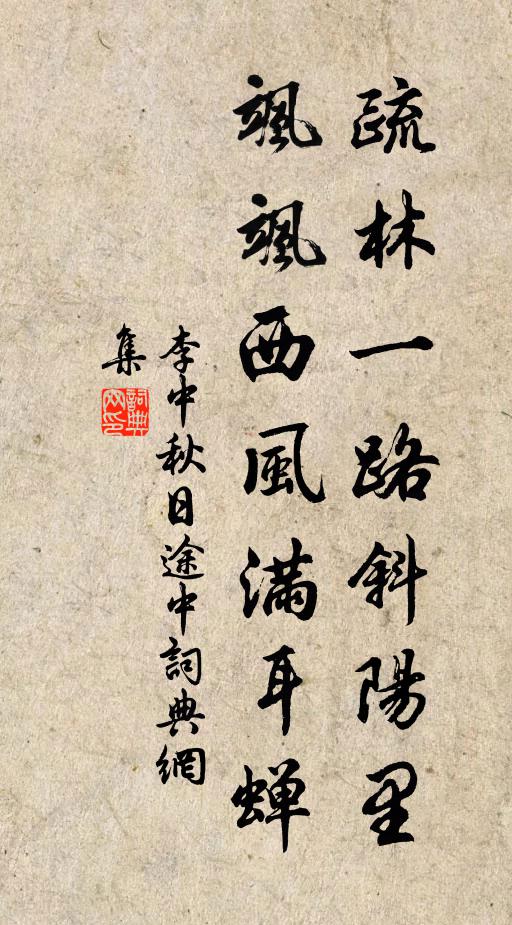 疏林一路斜陽里
颯颯西風滿耳蟬
李中秋日途中詞典網
集
詞典網印